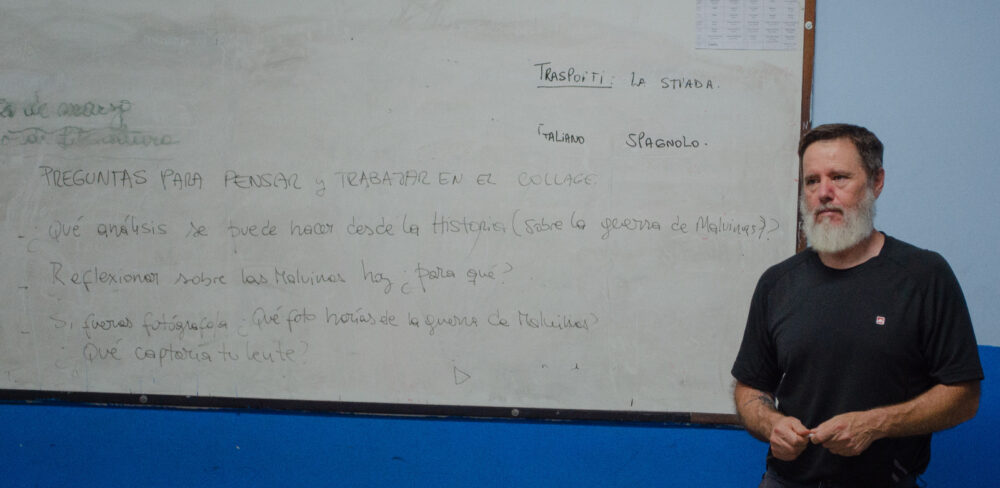 TRASPOSTI: LA STRADA.
ITALIANO SPAGNOLO.
de marzo
PREGUNTAS PARA PENSAR y TRABAJAR EN EL COLLAGE:
- ¿Qué análisis se puede hacer desde la Historia (sobre la guerra de Malvinas)?
- Reflexionar sobre las Malvinas hoy ¿para qué?
- Si fueras fotógrafo/a ¿Qué foto harías de la guerra de Malvinas?
¿Qué captaría tu lente?